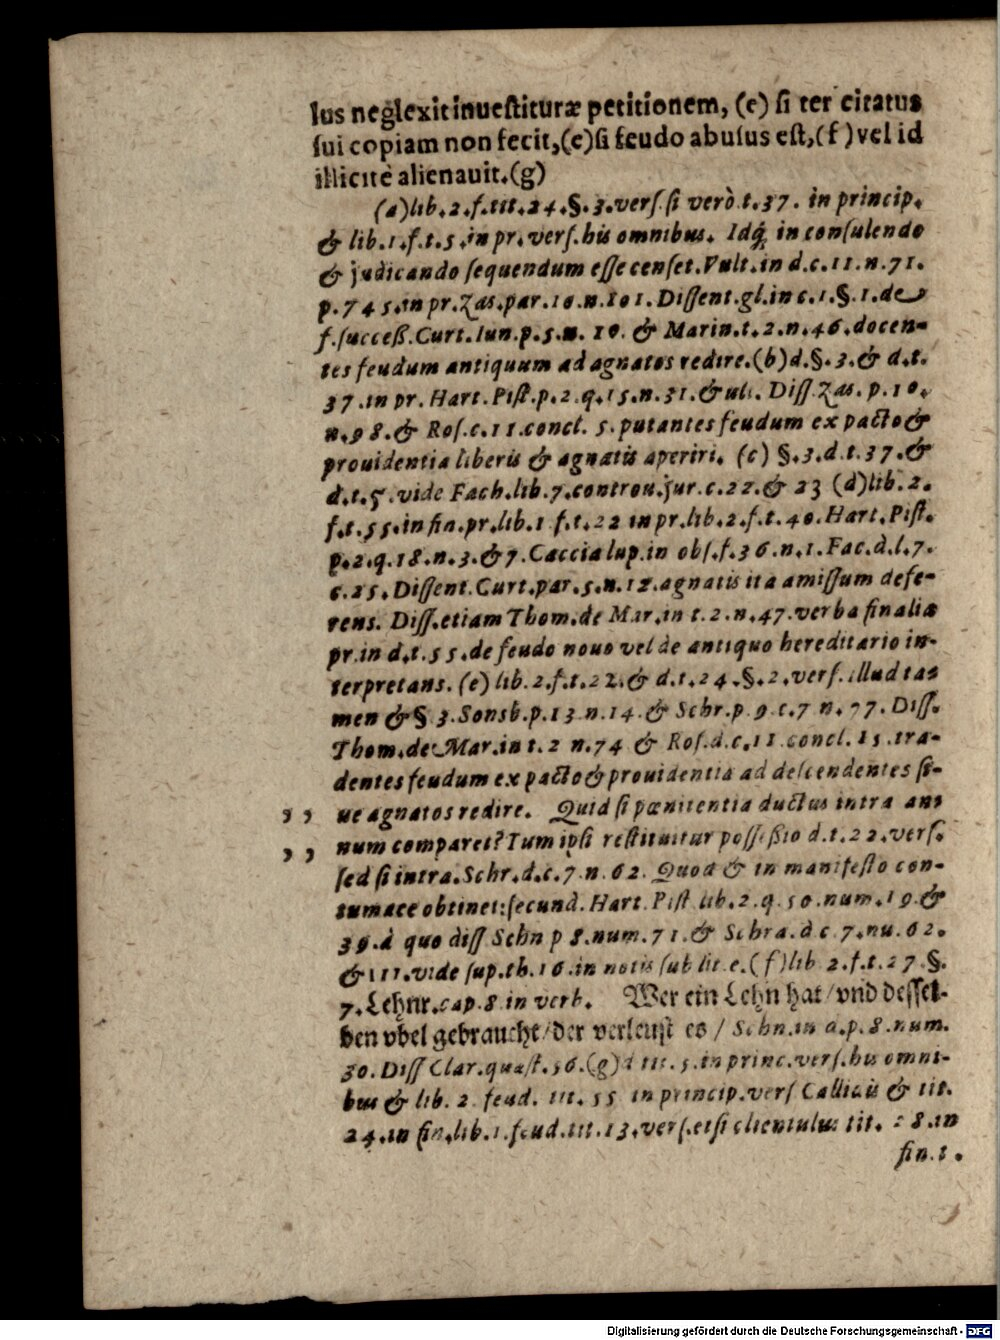 lus neglexit inuestituræ petitionem, (e) si ter citatus
sui copiam non fecit,(e)si feudo abusus est,(f) vel id
illicitè alienauit.(g)
(a)lib.2.f.tit.24.§.3.vers.si verò t.37. in princip.
& lib.1.f.t.5.in pr.vers.his omnibus. Idq́; in consulendo
& judicando sequendum esse censet.Vult.in d.c.11.n.71.
p.745.in pr.Zas.par.10.n.101.Dissent.gl.in c.1.§.1.de
f.success.Curt.Iun.p.5.n.10.& Marin.t.2.n.46.docen-
tes feudum antiquum ad agnatos redire.(b)d.§.3.& d.t.
37.in pr. Hart.Pist.p.2.q.15.n.31.& ult. Diss.Zas.p.10.
n.98.& Ros.c.11.concl. 5.putantes feudum ex pacto &
prouidentia liberis & agnatis aperiri. (c) §.3.d.t.37.&
d.t.5.vide Fach.lib.7.controu.jur.c.22.& 23 (d)lib.2.
f.t.55.in fin.pr.lib.1 f.t.22 in pr.lib.2.f.t.40.Hart.Pist.
p.2.q.18.n.3.&7.Caccialup.in obs.f.36.n.1.Fac.d.l.7.
c.25.Dissent.Curt.par.5.n.12.agnatis ita amissum defe-
rens. Diss.etiam Thom.de Mar.in t.2.n.47.verba finalia
pr.in d.t.55.de feudo nouo vel de antiquo hereditario in-
terpretans. (e) lib.2.f.t.22.& d.t.24.§.2.vers.illud ta=
men &§ 3.Sonsb.p.13.n.14.& Schr.p 9.c.7 n.77.Diss.
Thom.de Mar.in t.2 n.74 & Ros.d.c.11.concl.15.tra-
dentes feudum ex pacto & prouidentia ad descendentes si-
,, ue agnatos redire. Quid si pœnitentia ductus intra an=
,, num comparet? Tum ipsi restituitur possessio d.t.22.vers.
sed si intra.Schr.d.c.7.n.62. Quod & in manifesto con-
tumace obtinet:secund.Hart.Pist.lib.2.q.50.num.19.&
39.à quo diss Schn p 8.num.71.& Schra.d c.7.nu.62.
& 111.vide sup.th.16.in notis sub lit.e.(f)lib 2.f.t.27.§.
7.Lehnr.cap.8.in verb. Wer ein Lehn hat/vnd dessel-
ben vbel gebraucht/der verleust es / Schn.in d.p.8.num.
30.Diss Clar.quæst.56.(g)d tit.5.in princ.vers.his omni-
bus & lib. 2. feud. tit. 55 in princip.vers Callidis & tit.
24.in fin.lib.1.feud.tit.13.vers.etsi clientulus tit. 28.in
fin.t.
Digitalisierung gefördert durch die Deutsche Forschungsgemeinschaft - DFG